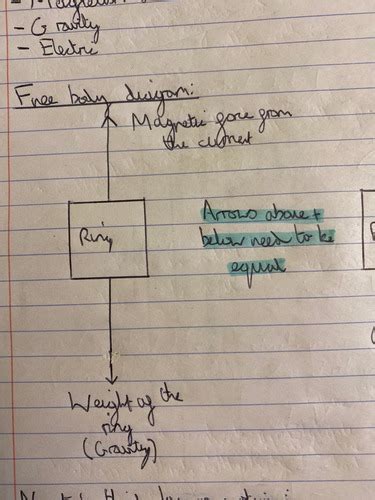 - Gravity
- Electric
Free body diagram:
Magnetic force from
the current
Ring
Arrows above +
below need to be
equal
Weight of the
ring
(Gravity)